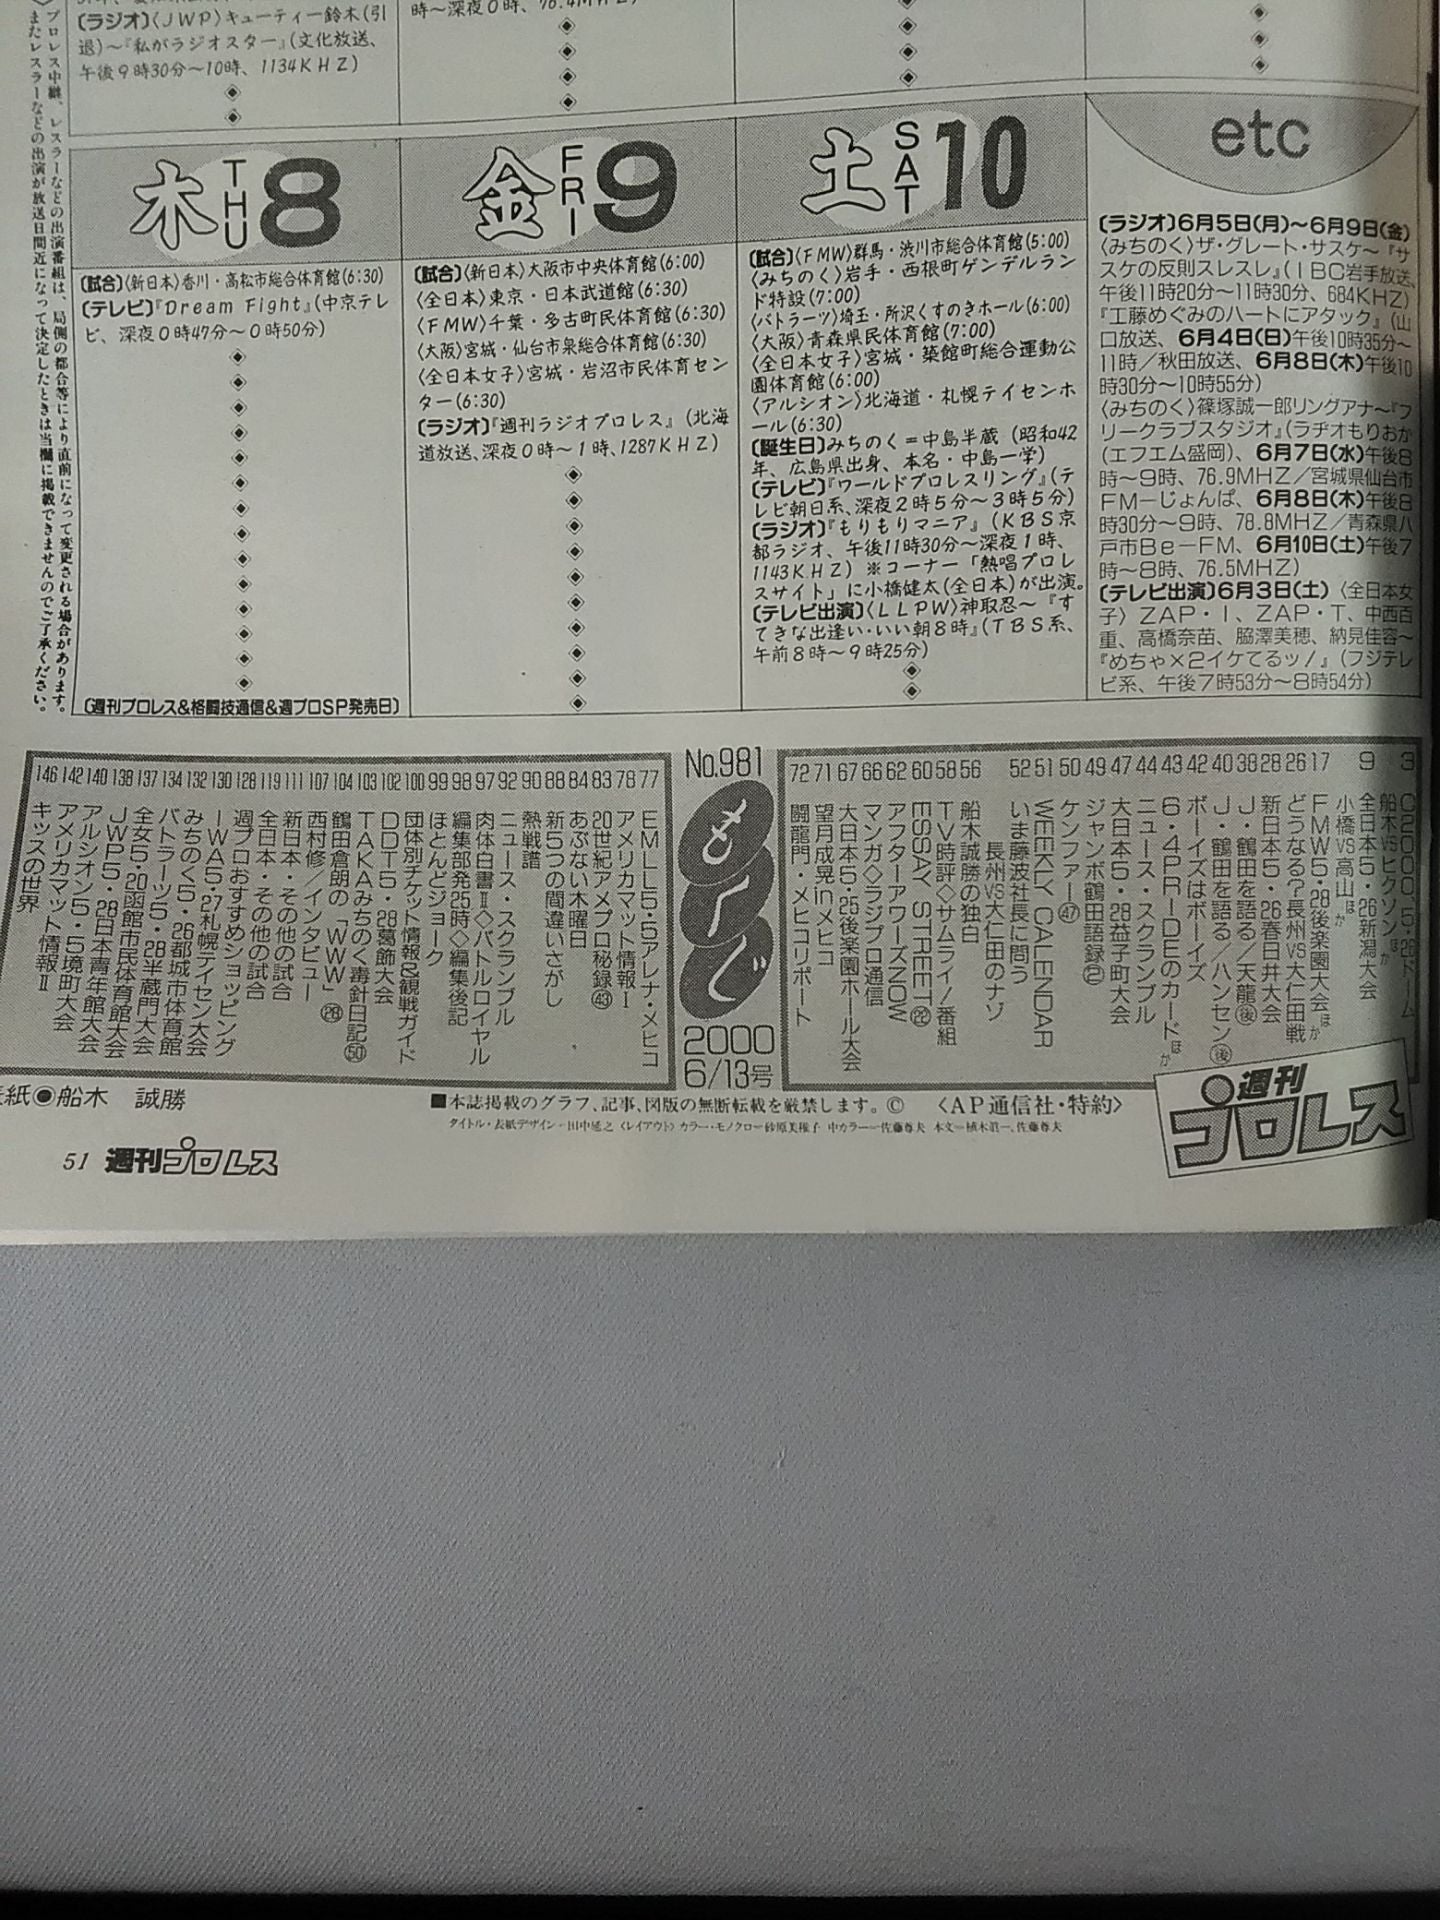 〔ラジオ〕〈JWP〉キューティー鈴木(引
退)～『私がラジオスター』(文化放送、
午後9時30分～10時、1134KHZ)
時～深夜0時、76.4MHZ)
プロレス中継、レスラーなどの出演番組は、局側の都合等により直前になって変更される場合があります。
またレスラーなどの出演が放送日間近になって決定したときは当欄に掲載できませんのでご了承ください。
木 THU 8
〔試合〕〈新日本〉香川・高松市総合体育館(6:30)
〔テレビ〕『Dream Fight』(中京テレ
ビ、深夜0時47分～0時50分)
〔週刊プロレス&格闘技通信&週プロSP発売日〕
金 FRI 9
〔試合〕〈新日本〉大阪市中央体育館(6:00)
〈全日本〉東京・日本武道館(6:30)
〈FMW〉千葉・多古町民体育館(6:30)
〈大阪〉宮城・仙台市泉総合体育館(6:30)
〈全日本女子〉宮城・岩沼市民体育セン
ター(6:30)
〔ラジオ〕『週刊ラジオプロレス』(北海
道放送、深夜0時～1時、1287KHZ)
土 SAT 10
〔試合〕〈FMW〉群馬・渋川市総合体育館(5:00)
〈みちのく〉岩手・西根町ゲンデルラン
ド特設(7:00)
〈バトラーツ〉埼玉・所沢くすのきホール(6:00)
〈大阪〉青森県民体育館(7:00)
〈全日本女子〉宮城・築館町総合運動公
園体育館(6:00)
〈アルシオン〉北海道・札幌テイセンホ
ール(6:30)
〔誕生日〕みちのく=中島半蔵(昭和42
年、広島県出身、本名・中島一学)
〔テレビ〕『ワールドプロレスリング』(テ
レビ朝日系、深夜2時5分～3時5分)
〔ラジオ〕『もりもりマニア』(KBS京
都ラジオ、午後11時30分～深夜1時、
1143KHZ)※コーナー「熱唱プロレ
スサイト」に小橋健太(全日本)が出演。
〔テレビ出演〕〈LLPW〉神取忍～『す
てきな出逢い・いい朝8時』(TBS系、
午前8時～9時25分)
etc
〔ラジオ〕6月5日(月)～6月9日(金)
〈みちのく〉ザ・グレート・サスケ～『サ
スケの反則スレスレ』(IBC岩手放送、
午後11時20分～11時30分、684KHZ)
『工藤めぐみのハートにアタック』(山
口放送、6月4日(日)午後10時35分～
11時/秋田放送、6月8日(木)午後10
時30分～10時55分)
〈みちのく〉篠塚誠一郎リングアナ～『フ
リークラブスタジオ』(ラヂオもりおか
(エフエム盛岡)、6月7日(水)午後8
時～9時、76.9MHZ/宮城県仙台市
FM-じょんぱ、6月8日(木)午後8
時30分～9時、78.8MHZ/青森県八
戸市Be-FM、6月10日(土)午後7
時～8時、76.5MHZ)
〔テレビ出演〕6月3日(土)〈全日本女
子〉ZAP・I、ZAP・T、中西百
重、高橋奈苗、脇澤美穂、納見佳容～
『めちゃ×2イケてるッ!』(フジテレ
ビ系、午後7時53分～8時54分)
3 C2000、5・26ドーム
船木VSヒクソンほか
9 全日本5・26新潟大会
小橋VS高山ほか
17 FMW5・28後楽園大会ほか
26 どうなる?長州VS大仁田戦
28 新日本5・26春日井大会
38 J・鶴田を語る/天龍㊝
40 J・鶴田を語る/ハンセン㊝
42 ボーイズはボーイズ
43 6・4PRIDEのカードほか
44 ニュース・スクランブル
47 大日本5・28益子町大会
49 ジャンボ鶴田語録㉑
50 ケンファー㊼
51 WEEKLY CALENDAR
52 いま藤波社長に問う
長州VS大仁田のナゾ
56 船木誠勝の独白
58 TV時評◇サムライ!番組
60 ESSAY STREET㉒
62 アフターアワーズNOW
66 マンガ◇ラジプロ通信
67 大日本5・25後楽園ホール大会
71 望月成晃inメヒコ
72 闘龍門・メヒコリポート
No.981
もくじ
2000
6/13号
77 EMLL5・5アレナ・メヒコ
78 アメリカマット情報Ⅰ
83 20世紀アメプロ秘録㊸
84 あぶない木曜日
88 新5つの間違いさがし
90 熱戦譜
92 ニュース・スクランブル
97 肉体白書Ⅱ◇バトルロイヤル
98 編集部発25時◇編集後記
99 ほとんどジョーク
100 団体別チケット情報&観戦ガイド
102 DDT5・28葛飾大会
103 TAKAみちのく毒針日記㊿
104 鶴田倉朗の「WWW」㉘
107 西村修/インタビュー
111 新日本・その他の試合
119 全日本・その他の試合
128 週プロおすすめショッピング
130 IWA5・27札幌テイセン大会
132 みちのく5・26都城市体育館
134 バトラーツ5・28半蔵門大会
137 全女5・20函館市民体育館大会
138 JWP5・28日本青年館大会
140 アルシオン5・5境町大会
142 アメリカマット情報Ⅱ
146 キッスの世界
表紙◉船木 誠勝
■本誌掲載のグラフ、記事、図版の無断転載を厳禁します。© 〈AP通信社・特約〉
週刊プロレス
51 週刊プロレス